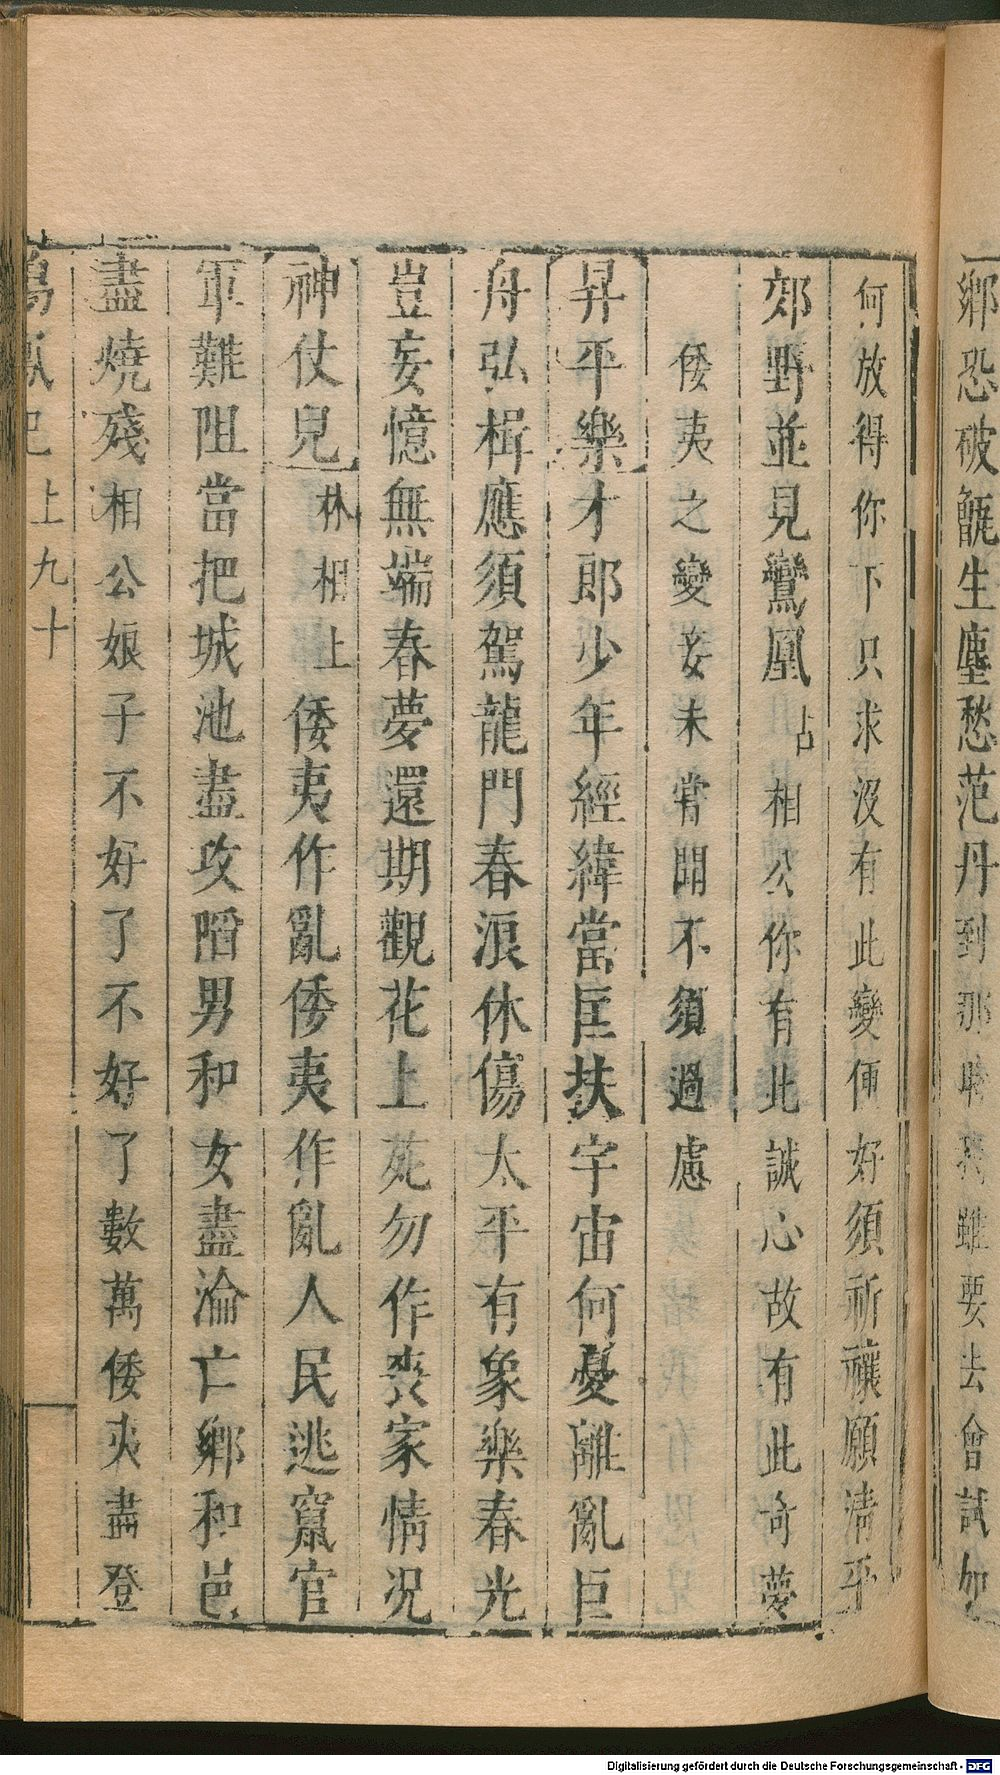 鄉恐破甑生塵愁范丹到那時雖要去會試如
何放得你下只求沒有此變便好須祈禳願清平
郊野並見鸞凰占相公你有此誠心故有此奇夢
倭夷之變妾未嘗聞不須過慮
昇平樂才郎少年經緯當匡扶宇宙何憂離亂巨
舟弘楫應須駕龍門春浪休傷太平有象樂春光
豈妄憶無端春夢還期觀花上苑勿作喪家情況
神仗兒林相上倭夷作亂倭夷作亂人民逃竄官
軍難阻當把城池盡攻陷男和女盡淪亡鄉和邑
盡燒殘相公娘子不好了不好了數萬倭夷盡登
上九十
Digitalisierung gefördert durch die Deutsche Forschungsgemeinschaft - DFG